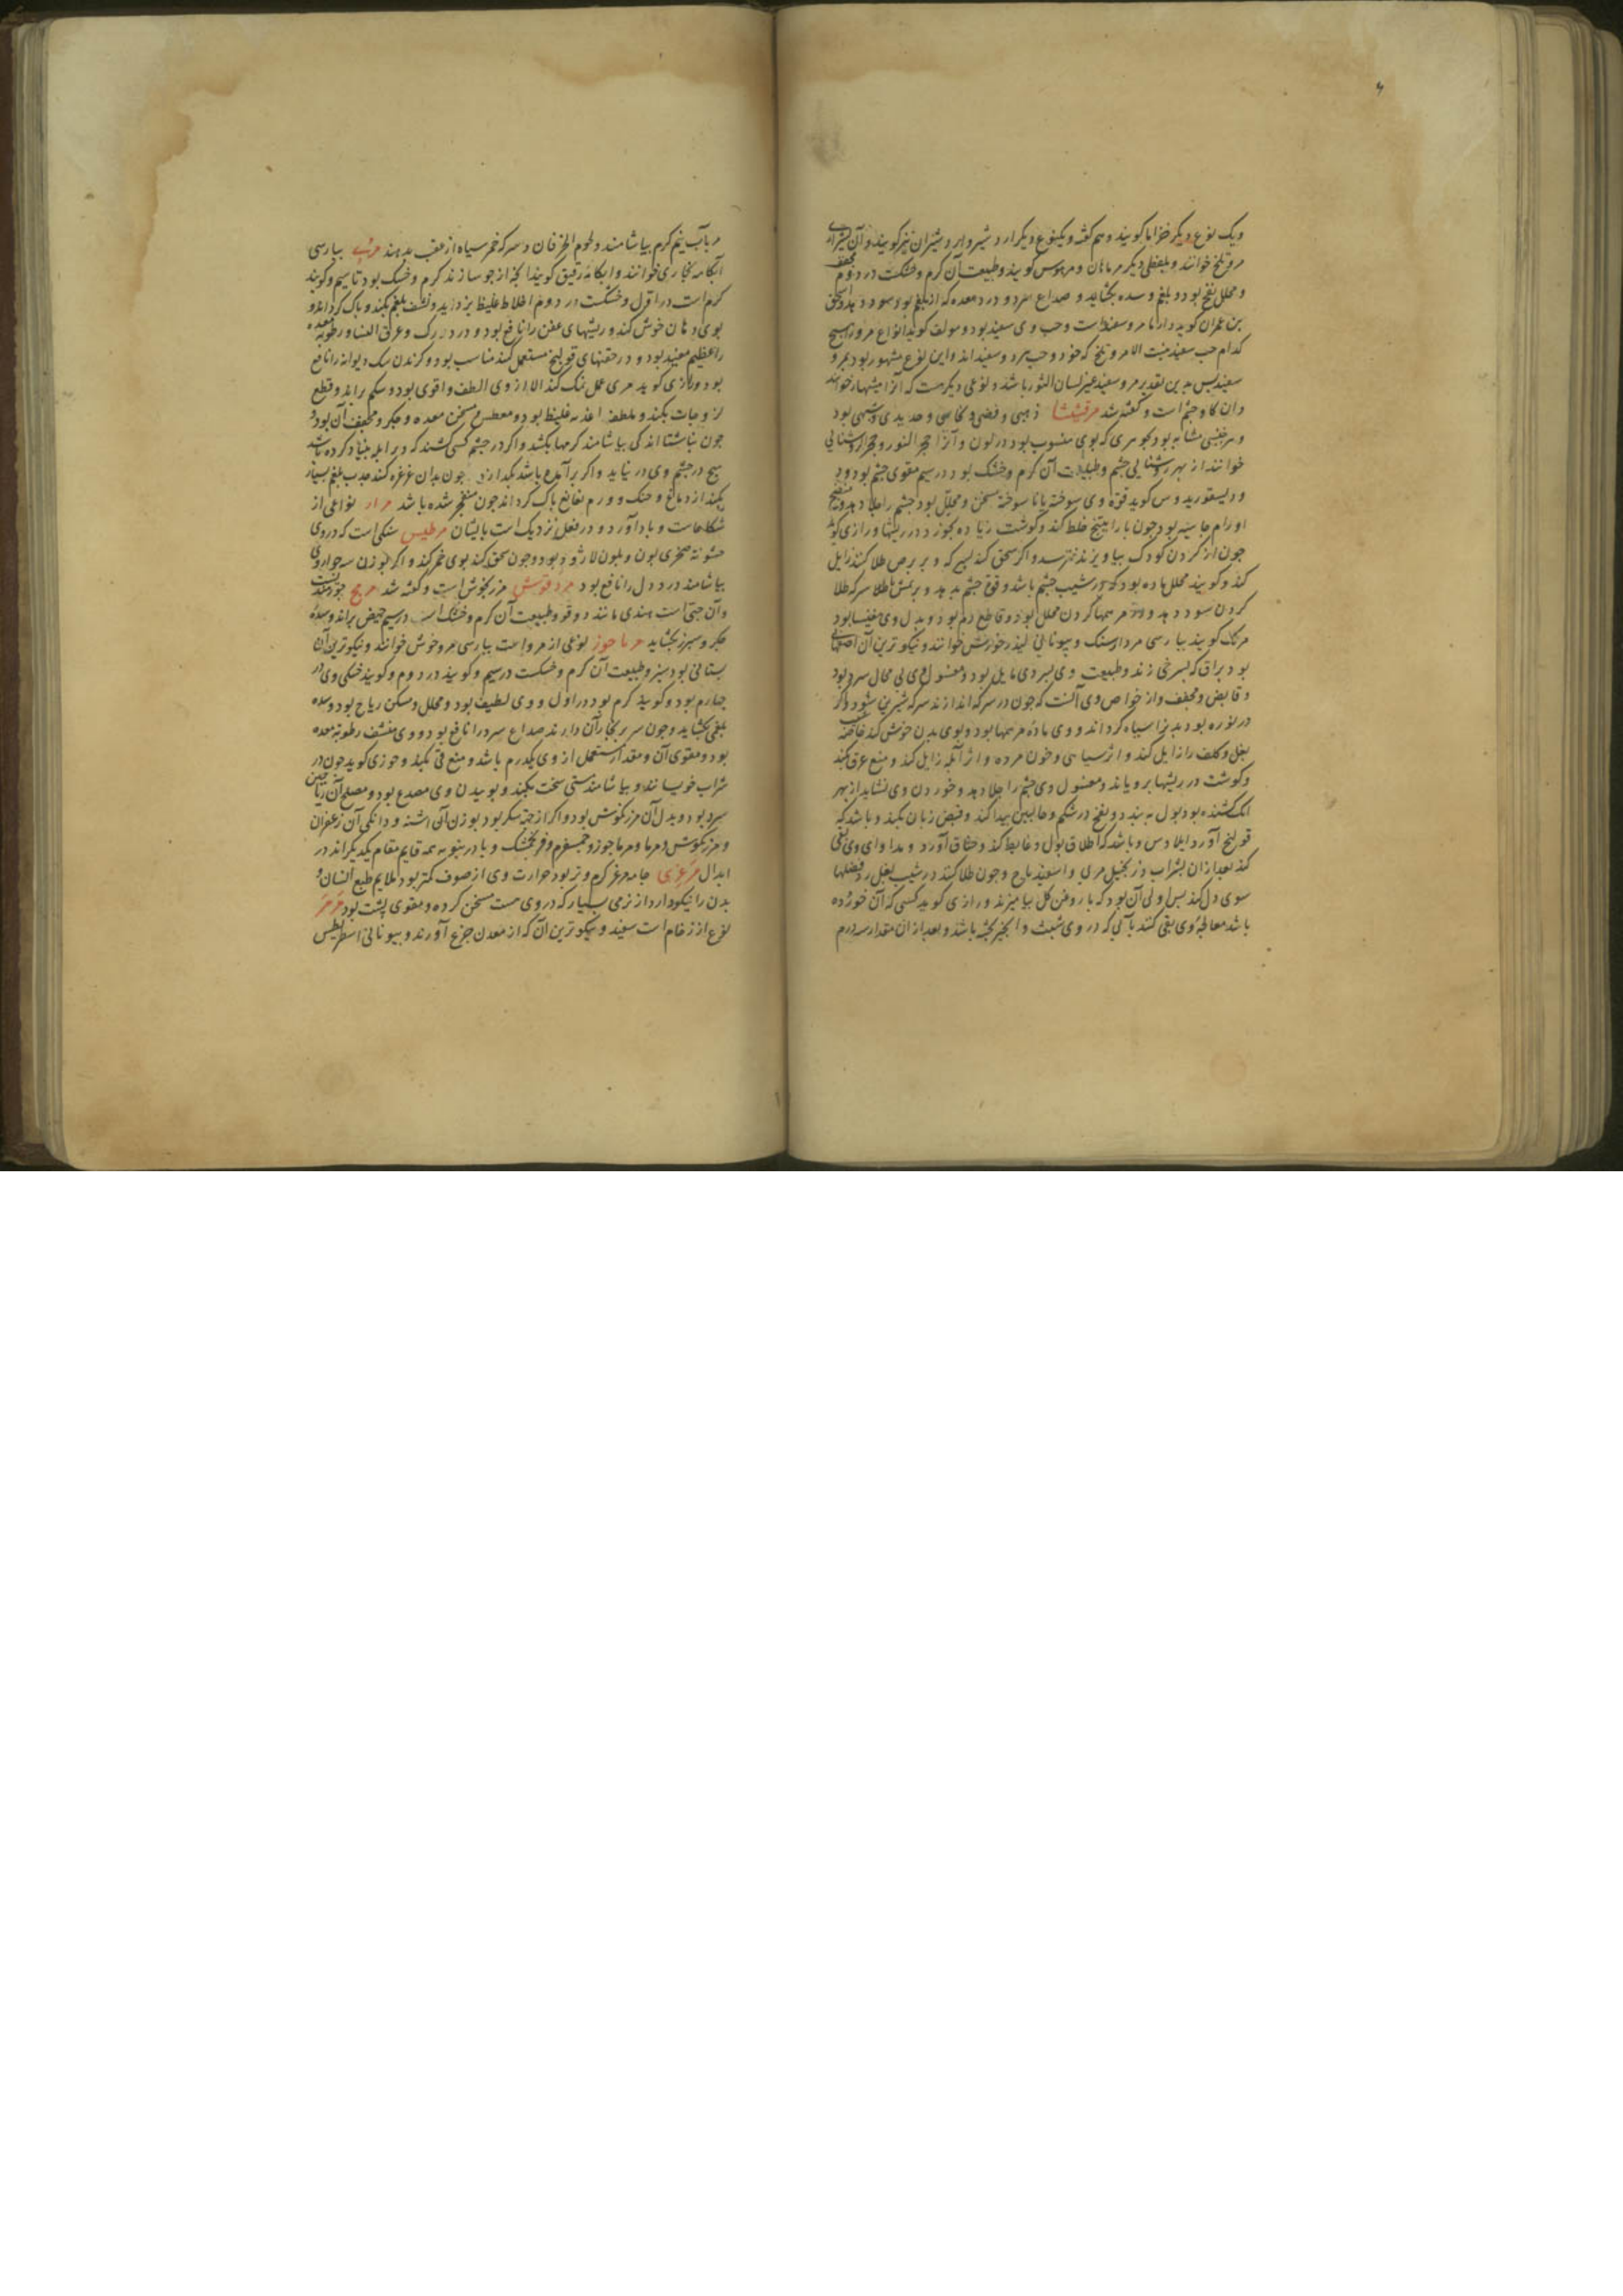 ویک نوع دیگر خزاما گویند و هم گفته و یکنوع دیگر ارد شیرو ارد شیران نیز گویند و آن
مرو تلخ خوانند و بلفظی دیگر مرماهان و مرموس گویند و طبیعت آن گرم و خشکست در دوم
و محلل نفخ بود و بلغم و سده بکشاید و صداع سرد و درد معده که از بلغم بود سود دهد
بن عمران گوید دارانا مرو سفیدست وحب وی سفید بود و مولف گوید انواع مرو را هیچ
کدام حب سفید نیست الا مرو تلخ که خود وحب هردو سفیداند و این نوع مشهور بود بمرو
سفید پس بدین تقدیر مرو سفید غیر لسان الثور باشد و نوعی دیگرست که آنرا میشبهار خوانند
وان گاو چشم است و گفته شد مرقشیشا ذهبی و فضی و نحاسی و حدیدی و شبهی بود
و هر جنسی مشابه بود بجوهری که بوی منسوب بود در لون و آنرا حجر النور و حجر روشنایی
خوانند از بهر روشنایی چشم و طبیعت آن گرم و خشک بود در سیم مقوی چشم بود
و دیسقوریدوس گوید قوة وی سوخته یا نا سوخته مسخن و محلل بود چشم را جلا دهد
اورام جاسیه بود چون با راتینج خلط کنند و گوشت زیاده بخورد در ریشها و رازی گوید
چون از گردن کودک بیاویزند نترسد و اگر سحق کنند بسرکه و بر برص طلا کنند زایل
کند و گویند محلل ماده بود که در شیب چشم باشد و قوة چشم بدهد و برنمش با سرکه طلا
کردن سود دهد و در مرهمها کردن محلل بود و قاطع دم بود و بدل وی مغنیسا بود
مرتک گویند بپارسی مردارسنگ و بیونانی لیذرخورش خوانند و نیکوترین آن اصفهانی
بود براق که بسرخی زند و طبیعت وی بسردی مایل بود و مغسول وی بی محال سرد بود
و قابض و مجفف و از خواص وی آنست که چون در سرکه اندازند سرکه شیرین شود و اگر
در نوره بود بدن را سیاه گرداند و وی ماده مرهمها بود و بوی بدن خوش کند خاصه
بغل و کلف را زایل کند و اثر سیاهی و خون مرده و اثر آبله زایل کند و منع عرق بکند
و گوشت در ریشها برویاند و مغسول وی چشم را جلا دهد و خوردن وی نشاید از بهر
انک کشنده بود بول به بندد و نفخ در شکم و حالبین پیدا کند و قبض زبان بکند و باشد که
قولنج آورد و ایلاوس و باشد که اطلاق بول و غایط کند و خناق آورد و مداوای وی بقی
کنند بعد از ان بشراب و زنجبیل مری و اسفیدباج و چون طلا کنند در شیب بغل رد فضلها
سوی دل کند پس اولی آن بود که با روغن گل بیامیزند و رازی گوید کسی که آن خورده
باشد معالجهٔ وی بقی کنند بآبی که در وی شبت و انجیر پخته باشد و بعد از ان مقدار سه درم
مر بآب نیم گرم بیاشامند و لحوم الخرفان و سرکه خمر سیاه از عقب بدهند مری بپارسی
آبکامه خوانند و آبکامه رقیق گویند آنچه از جو سازند گرم و خشک بود تا سیم و گویند
گرم است در اول و خشکست در دوم اخلاط غلیظ بزداید و نشف بلغم بکند و پاک گرداند و
بوی دهان خوش کند و ریشهای عفن را نافع بود و درد ورک و عرق النسا و رطوبه معده
را عظیم مفید بود و در حقنهای قولنج مستعمل کنند مناسب بود و گزندن سک دیوانه را نافع
بود و رازی گوید مری عمل نمک کند الا از وی الطف و اقوی بود و شکم راند و قطع
لزوجات بکند و ملطف اغذیه غلیظ بود و معطش و مسخن معده و جگر و مجفف آن بود و
چون بناشتا اندکی بیاشامند کرمها بکشد و اگر در چشم کسی کشند که در ابله بنیاد کرده باشد
هیچ در چشم وی در نیاید و اگر برآمده باشد بگدازند چون بدان غرغره کنند جذب بلغم بسیار
بکند از دماغ و حنک و ورم نغانغ پاک گرداند چون منفجر شده باشد مرار نوعی از
شکاعاست و بادآورد و در فعل نزدیک است بایشان مرطیس سنگی است که در وی
خشونة صخری بود و بلون لاژورد بود و چون سحق کنند بوی خمر کند و اگر بوزن سه جو از وی
بیاشامند درد دل را نافع بود مردقوش مرزنجوش است و گفته شد مریح
وان حبی است هندی مانند دوقو و طبیعت آن گرم و خشک است در سیم حیض براند و سده
جگر و سپرز بکشاید مرماحوز نوعی از مرو است بپارسی مرو خوش خوانند و نیکوترین آن
بستانی بود سبز و طبیعت آن گرم و خشکست در سیم و گویند در دوم و گویند خشکی وی در
چهارم بود و گویند گرم بود در اول و وی لطیف بود و محلل و مسکن ریاح بود و سده
بلغمی بکشاید و چون سر بر بخار آن دارند صداع سرد را نافع بود و وی منشف رطوبة معده
بود و مقوی آن و مقدار مستعمل از وی یکدرم باشد و منع قی بکند و خوزی گوید چون در
شراب خویسانند و بیاشامند مستی سخت بکند و بوییدن وی مصدع بود و مصلح آن ریاحین
سرد بود و بدل آن مرزنگوش بود و اگر از جهة سکر بود بوزن آن اشنه و دانگی آن زعفران
و مرزنگوش و مرما و مرماحوز و حمسفرم و فرنجمشک و بادرنبویه همه قایم مقام یکدیگراند در
ابدال مرعزی جامه مرغز گرم و تر بود حرارت وی از صوف کمتر بود ملایم طبع انسان و
بدن را نیکو دارد از نرمی بسیار که در وی هست مسخن گرده و مقوی پشت بود مرمر
نوع از زخام است سفید و نیکوترین آن که از معدن جزع آورند و بیونانی اسطریطیس